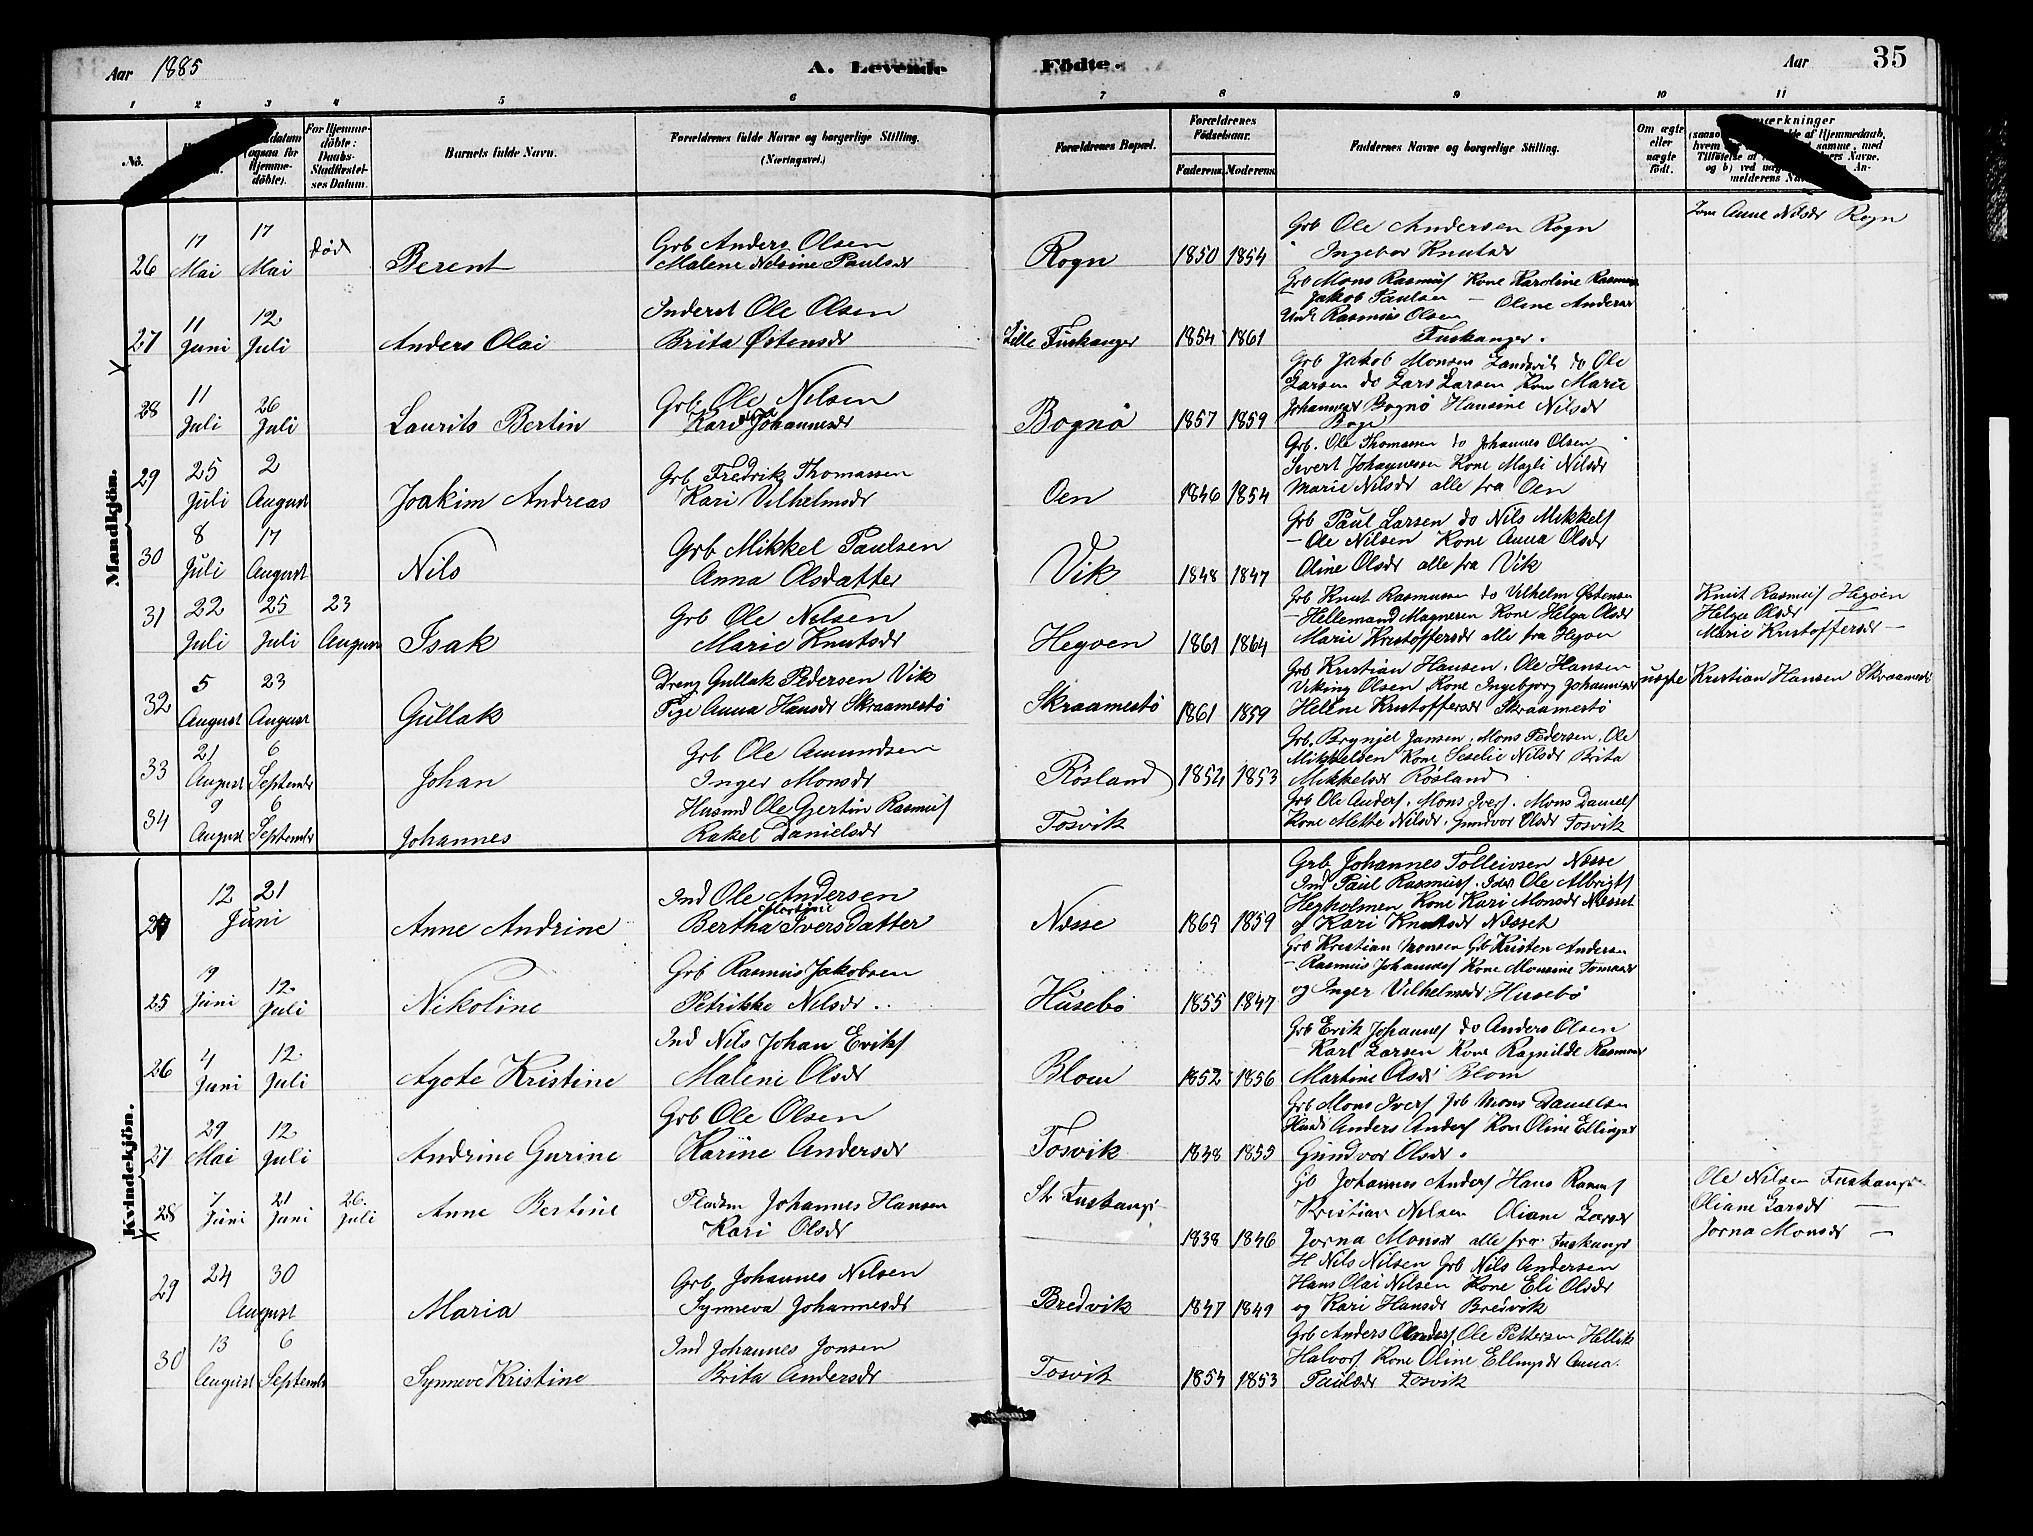 Aar 1885
A. Levende
Födte.
Aar
35
1 2 3 4 5 6 7 8 9 10 11
No.
datum (ogsaa for Hjemme-döbte).
For Hjemme-döbte: Daabs-Stadfæstel-ses Datum.
Barnets fulde Navn.
Forældrenes fulde Navne og borgerlige Stilling. (Næringsvei.)
Forældrenes Bopæl.
Forældrenes Födselsaar.
Faderens. Moderens.
Faddernes Navne og borgerlige Stilling.
Om ægte eller uægte födt.
Mandkjön.
26 17 Mai 17 Mai død Berent
Grb Anders Olsen
Malene Nelsine Paulsdr
Rogn 1850 1854
Grb Ole Andersen Rogn
Ingebor Knutsdr
Jom Anne Nilsdr Rogn
27 11 Juni 12 Juli Anders Olai
Inderst Ole Olsen
Brita Østensdr
Lille Fuskanger 1854 1861
Grb Mons Rasmus Kone Karoline Rasmus
Jakob Paulsen — Oline Andersdr
Und Rasmus Olsen
Fuskanger.
28 11 Juli 26 Juli Laurits Bertin
Grb Ole Nilsen
Kari Johannesdr
Bognø 1857 1859
Grb Jakob Monsen Landsvik do Ole
Larsen do Lars Larsen Kone Marie
Johannesdr Bognø Hansine Nilsdr
29 25 Juli 2 August Joakim Andreas
Grb Fredrik Thomassen
Kari Vilhelmsdr
Oen 1846 1854
Grb. Ole Thomassen do Johannes Olsen
Sivert Johannessen Kone Magli Nilsdr
Marie Nilsdr alle fra Oen
30 8 Juli 17 August Nils
Grb Mikkel Paulsen
Anna Olsdatter
Vik 1848 1847
Grb Paul Larsen do Nils Mikkels
— Ole Nilsen Kone Anna Olsdr
Oline Olsdr alle fra Vik
31 22 Juli 25 Juli 23 August Isak
Grb Ole Nilsen
Marie Knutsdr
Hegoen 1861 1864
Grb Knut Rasmussen do Vilhelm Østensen
— Hellemand Magnesen Kone Helga Olsdr
Marie Kristoffersdr alle fra Hegoen
Knut Rasmus Hegoen
Helga Olsdr —
Marie Kristoffersdr —
32 5 August 23 August Gullak
Dreng Gullak Pedersen Vik
Pige Anna Hansdr Skraamestø
Skraamestø 1861 1859
Grb Kristian Hansen, Ole Hansen
Viking Olsen Kone Ingebjorg Johannesdr
Hellne Kristoffersdr Skraamestø
uægte
Kristian Hansen Skraamestø
33 21 August 6 September Johan
Grb Ole Amundsen
Inger Monsdr
Røsland 1852 1853
Grb. Brynjel Jansen, Mons Pedersen, Ole
Mikkelsen Kone Seselie Nilsdr Brita
Mikkelsdr Røsland
34 9 August 6 September Johannes
Husmd Ole Gjertin Rasmus
Rakel Danielsdr
Tosvik
Grb Ole Anders, Mons Ivers, Mons Daniels
Kone Mette Nilsdr, Gundvor Olsdr Tosvik
Kvindekjön.
24 12 21 Juni Anne Andrine
Ind Ole Andersen
Martine
Bertha Iversdatter
Nesse 1865 1859
Grb Johannes Tolleivsen Nesse
Ind Paul Rasmus, Ind Ole Albrigts
Hegholmen Kone Kari Monsdr Nesset
og Kari Knutsdr Nesset
25 9 Juni 12 Juli Nikoline
Grb Rasmus Jakobsen
Petrikke Nilsdr
Husebø 1855 1847
Grb Kristian Monsen Grb Kristen Andersen
— Rasmus Johannes Kone Monsine Tomasdr
og Inger Vilhelmsdr Husebø
26 4 Juni 12 Juli Agote Kristine
Ind Nils Johan Eriks
Malene Olsdr
Blom 1852 1856
Grb Erik Johannes do Anders Olsen
— Karl Larsen Kone Ragnilde Rasmus
Martine Olsdr Blom
27 29 Mai 12 Juli Andrine Gurine
Grb Ole Olsen
Karine Andersdr
Tosvik 1838 1855
Grb Mons Ivers Grb Mons Danielsen
Husd Anders Anders Kon Oline Ellingsdr
Gundvor Olsdr.
28 7 Juni 21 Juni 26. Juli Anne Bertine
Pladsm Johannes Hansen
Kari Olsdr
St Fuskange 1838 1846
Gb Johannes Anders Hans Rasmus
Kristian Nilsen Oliane Larsdr
Jorna Monsdr alle fra Fuskange
Ole Nilsen Fuskange
Oliane Larsdr —
Jorna Monsdr —
29 24 30 August Maria
Grb Johannes Nilsen
Synneva Johannesdr
Bredvik 1847 1849
H Nils Nilsen Grb Nils Andersen
Hans Olai Nilsen Kone Eli Olsdr
og Kari Hansdr Bredvik
30 13 August 6 September Synneve Kristine
Ind Johannes Jonsen
Brita Andersdr
Tosvik 1854 1853
Grb Anders Anders, Ole Pettersen Hellik
Halvors Kone Oline Ellingsdr Anna
Paulsdr Tosvik